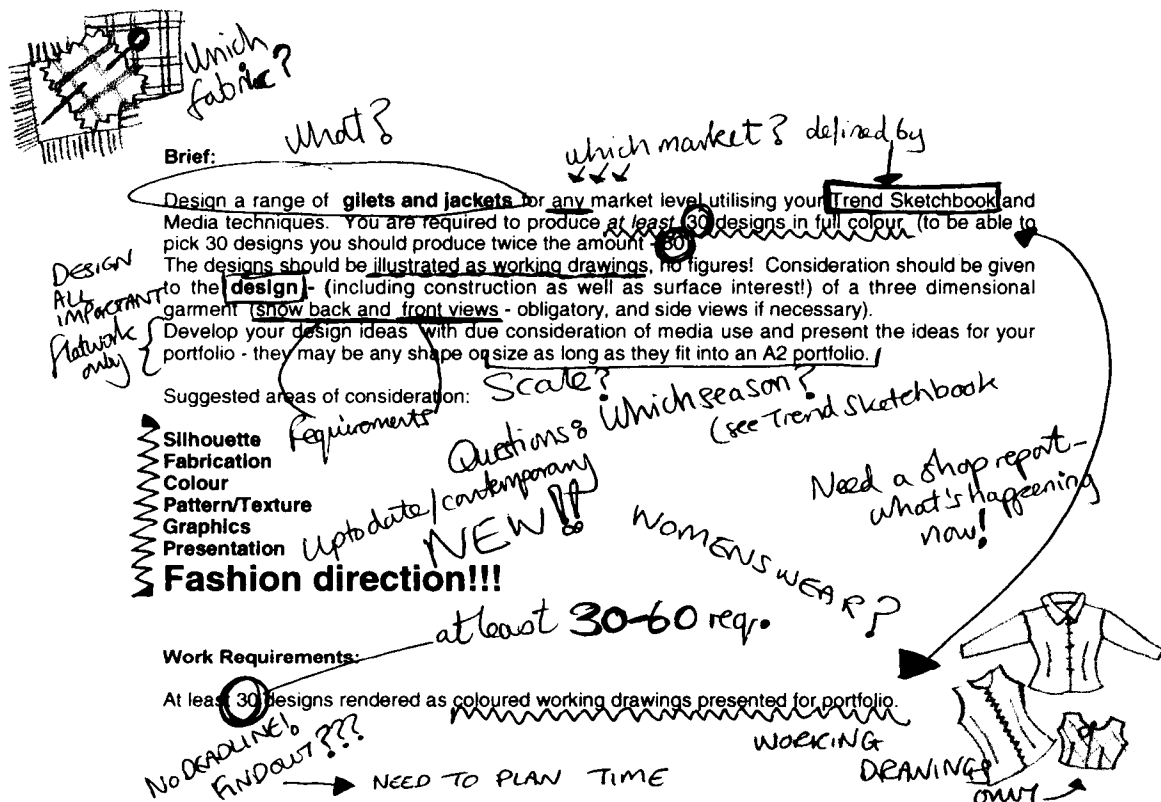 Which
fabric?
What?
which market? defined by
Brief:
Design a range of gilets and jackets for any market level utilising your Trend Sketchbook and
Media techniques. You are required to produce at least 30 designs in full colour (to be able to
pick 30 designs you should produce twice the amount - 60)
The designs should be illustrated as working drawings, no figures! Consideration should be given
to the design - (including construction as well as surface interest!) of a three dimensional
garment (show back and front views - obligatory, and side views if necessary).
Develop your design ideas with due consideration of media use and present the ideas for your
portfolio - they may be any shape or size as long as they fit into an A2 portfolio.
DESIGN
ALL
IMPORTANT
Flatwork
only
Suggested areas of consideration:
Scale?
Requirements
Questions: Which season?
(see Trend Sketchbook
Silhouette
Fabrication
Colour
Pattern/Texture
Graphics
Presentation
Fashion direction!!!
Up to date/contemporary
NEW!!
Need a shop report -
what's happening
now!
WOMENSWEAR?
at least 30-60 req.
Work Requirements:
At least 30 designs rendered as coloured working drawings presented for portfolio.
NO DEADLINE!
FIND OUT???
NEED TO PLAN TIME
WORKING
DRAWINGS
ONLY